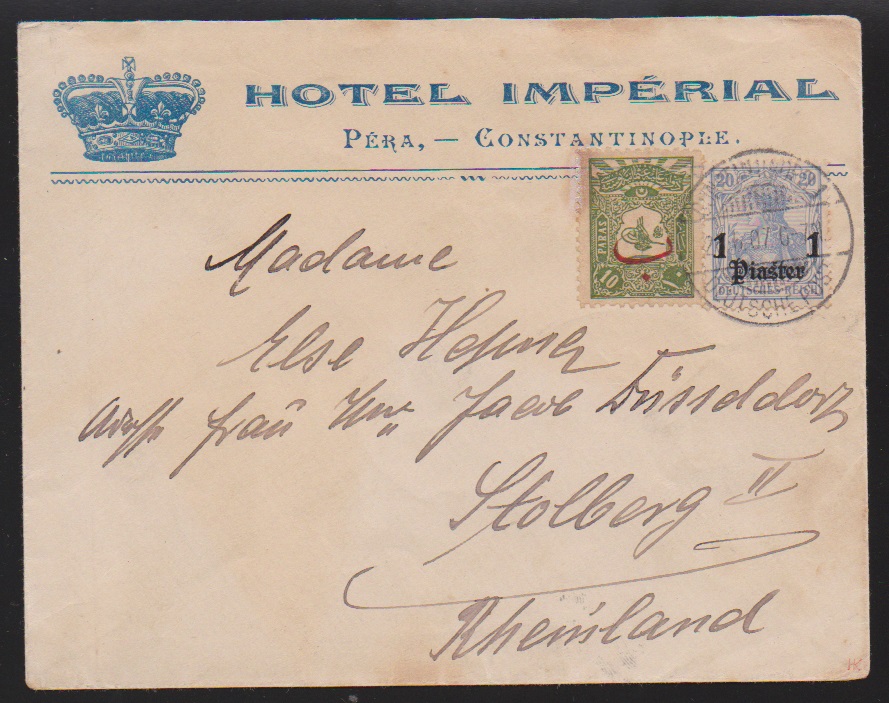 HOTEL IMPÉRIAL
PÉRA, — CONSTANTINOPLE.
PARAS
10
20 20
1 1
Piaster
DEUTSCHES REICH
DEUTSCHE
Madame
Else
frau Jacob Düsseldorf
Stolberg II
Rheinland